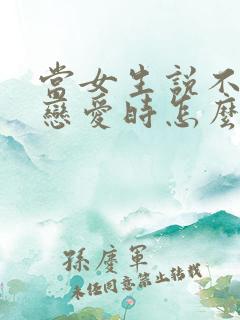 當女生說不
戀愛時怎麼
孫慶軍
未經同意禁止轉載